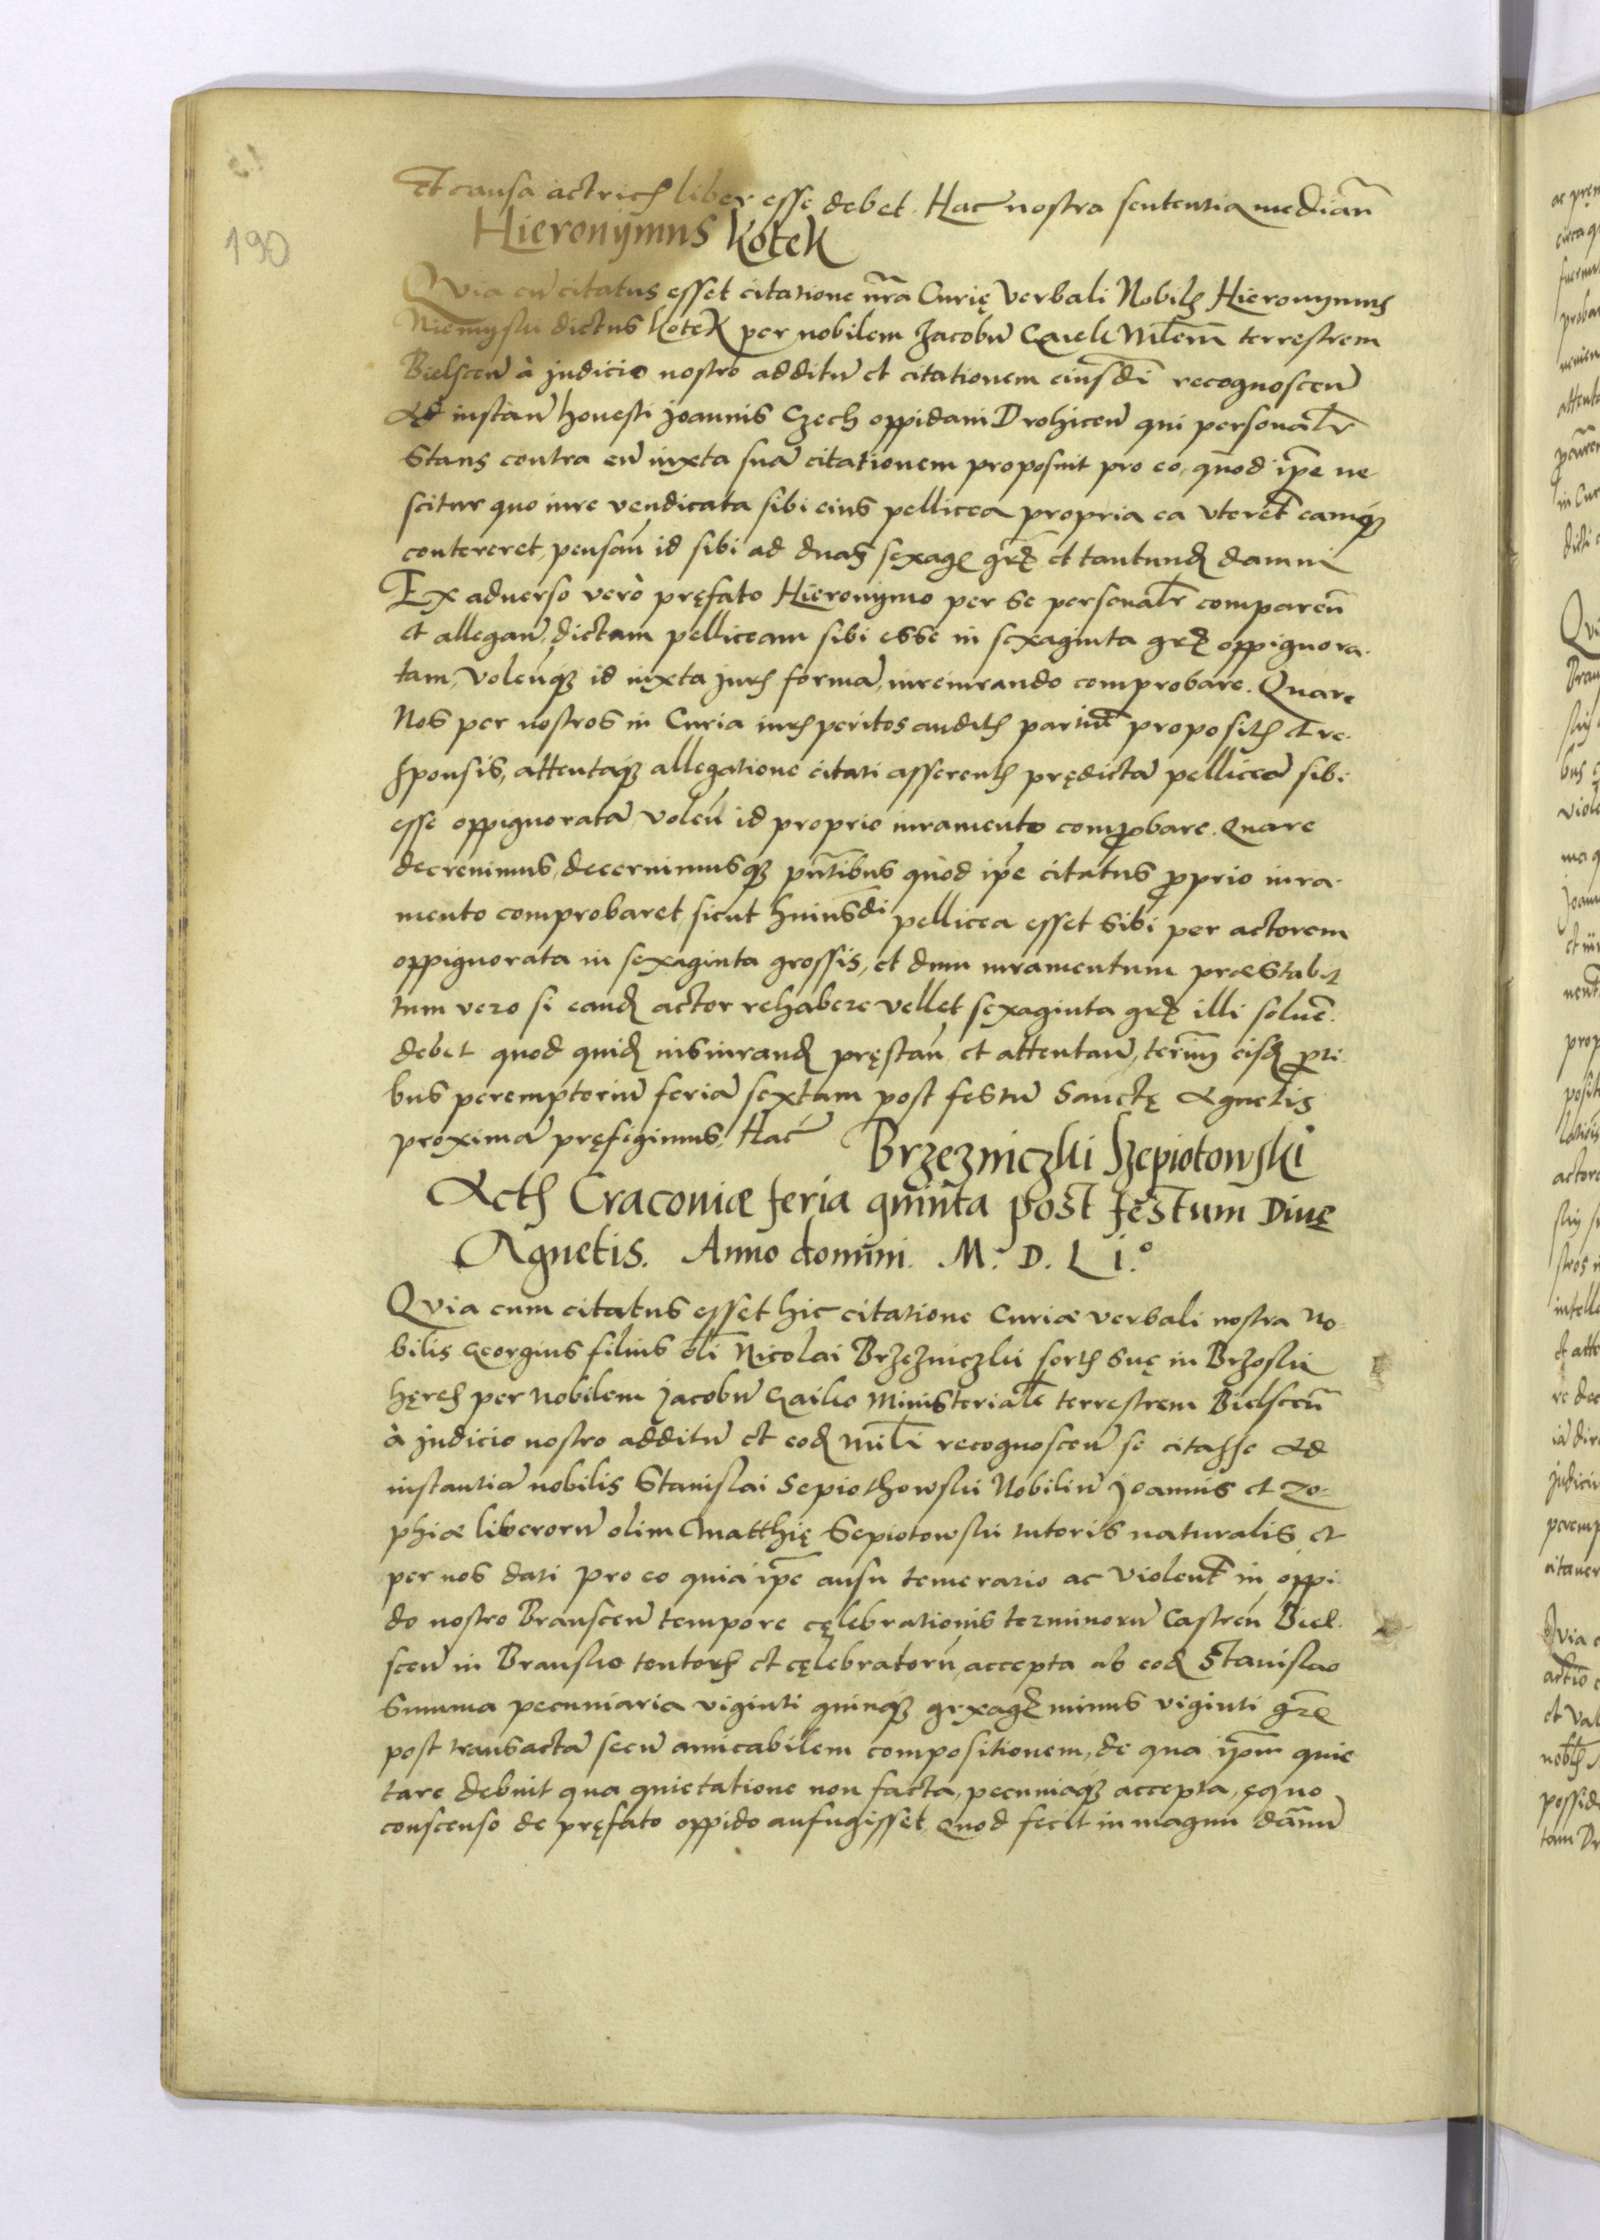 190
Et causa actricis liber esse debet. Hac nostra sententia mediañ
Hieronymus Kotek
Qvia cū citatus esset citatione nr̃a Curię Verbali Nobilis Hieronymus
Niemyski dictus Kotek per nobilem Jacobū Mlem terrestrem
Bielsceñ à judicio nostro additū et citationem eiusdi recognosceñ
Ad instañ honesti Joannis Czech oppidani Drohiceñ qui personalr
Stans contra eū iuxta suā citationem proposuit pro eo, quod ipe ne
scitur quo iure vendicata sibi eius pellicea propria ea vteret eamq3
contereret, pensañ id sibi ad duas sexagē grs et tantund damni
Ex aduerso verò pręfato Hieronymo per se personalr compareñ
et allegañ, dictam pelliceam sibi esse in sexaginta grs oppignora-
tam, Voleñq3 id iuxta juris formā, iureiurando comprobare. Quare
Nos per nostros in Curia iuris peritos auditis partiū propositis et re-
sponsis, attentaq3 allegatione citati asserentis prędictā pelliceā sibi
esse oppignoratā Voleñ id proprio iuramento comprobare. Quare
decreuimus, decernimusq3 pn̄tibus quòd ipe citatus proprio iura-
mento comprobaret, sicut huiusdi pellicea esset sibi per actorem
oppignorata in sexaginta grossis, et dum iuramentum præstabit
tum vero si eand actor rehabere vellet sexaginta grs illi soluē.
debet quod quid iusiurand pręstañ, et attentañ, termī eisd parti-
bus peremptoriū feriā sextam post festū Sanctę Agnetis
proximā pręfigimus. Hac
Brzezniczki Szepiotowski
Actis Craconiæ feria quinta post festum Diuę
Agnetis. Anno domini. M. D. L i.º
Qvia cum citatus esset hic citatione Curiæ verbali nostra No-
bilis Georgius filius oli Nicolai Brzezniczki sortis suę in Brzoski
hęres per Nobilem Jacobū Ministeriale terrestrem Bielsceñ
à judicio nostro additū et eod mili recognosceñ se citasse Ad
instantiā nobilis Stanislai Sepiothowski Nobiliū Joannis et Zo-
phiæ liberorū olim Matthię Sepiotowski tutoris naturalis et
per nos dati pro eo quia ipe ausu temerario ac Violent in oppi-
do nostro Bransceñ tempore cęlebrationis terminorū Castreñ Biel-
sceñ in Bransko tentoris et cęlebratorū, accepta ab eod Stanislao
Summa pecuniaria viginti quinq3 sexagē minus viginti grs
post transactā secū amicabilem compositionem, de qua ipm quie
tare debuit qua quietatione non facta, pecuniaq3 accepta, equo
conscenso de pręfato oppido aufugisset, quod fecit in magnū damnū